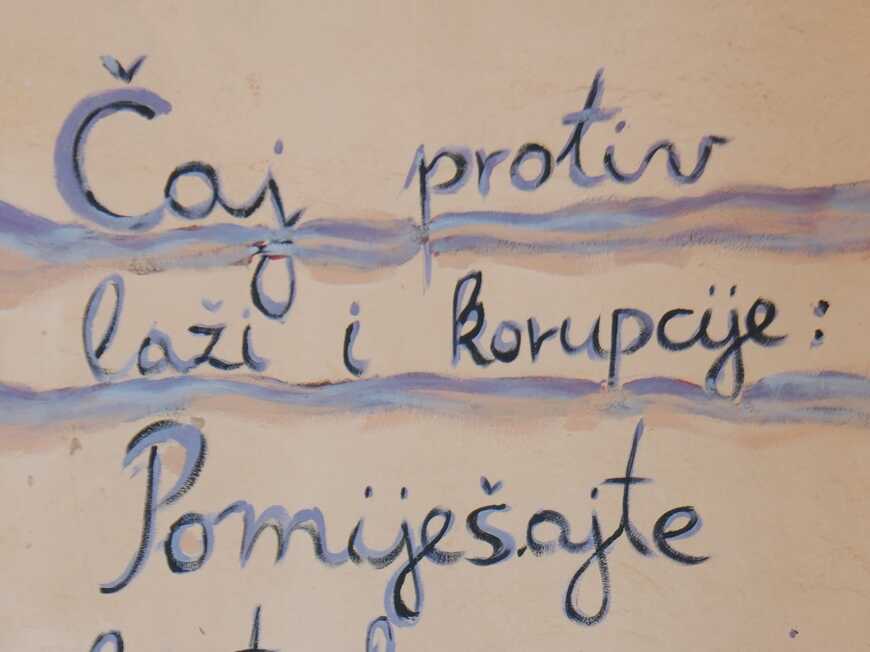 Čaj protiv
laži i korupcije:
Pomiješajte